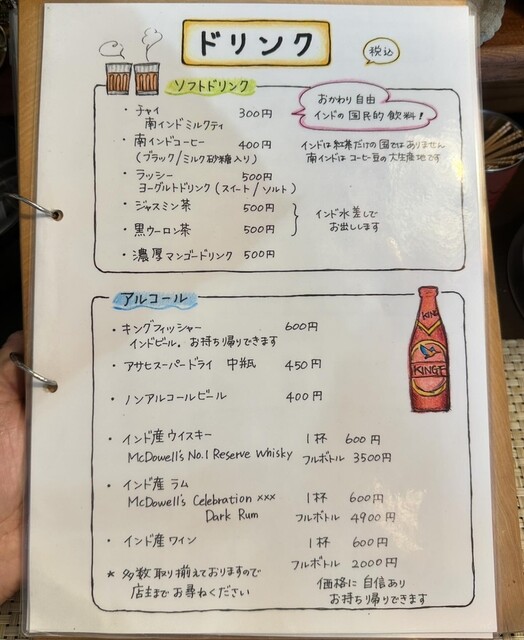 ドリンク
税込
ソフトドリンク
・チャイ 300円
南インドミルクティ
おかわり自由
インドの国民的飲料！
・南インドコーヒー 400円
(ブラック/ミルク砂糖入り)
インドは紅茶だけの国ではありません
南インドはコーヒー豆の大生産地です
・ラッシー 500円
ヨーグルトドリンク(スイート/ソルト)
・ジャスミン茶 500円
・黒ウーロン茶 500円
インド水差しで
お出しします
・濃厚マンゴードリンク 500円
アルコール
・キングフィッシャー 600円
インドビール。お持ち帰りできます
・アサヒスーパードライ 中瓶 450円
・ノンアルコールビール 400円
KING
KINGF
・インド産ウイスキー 1杯 600円
McDowell's No.1 Reserve Whisky フルボトル 3500円
・インド産 ラム
McDowell's Celebration xxx 1杯 600円
Dark Rum フルボトル 4900円
・インド産 ワイン 1杯 600円
フルボトル 2000円
★ 多数取り揃えておりますので
店主までお尋ねください
価格に自信あり
お持ち帰りできます